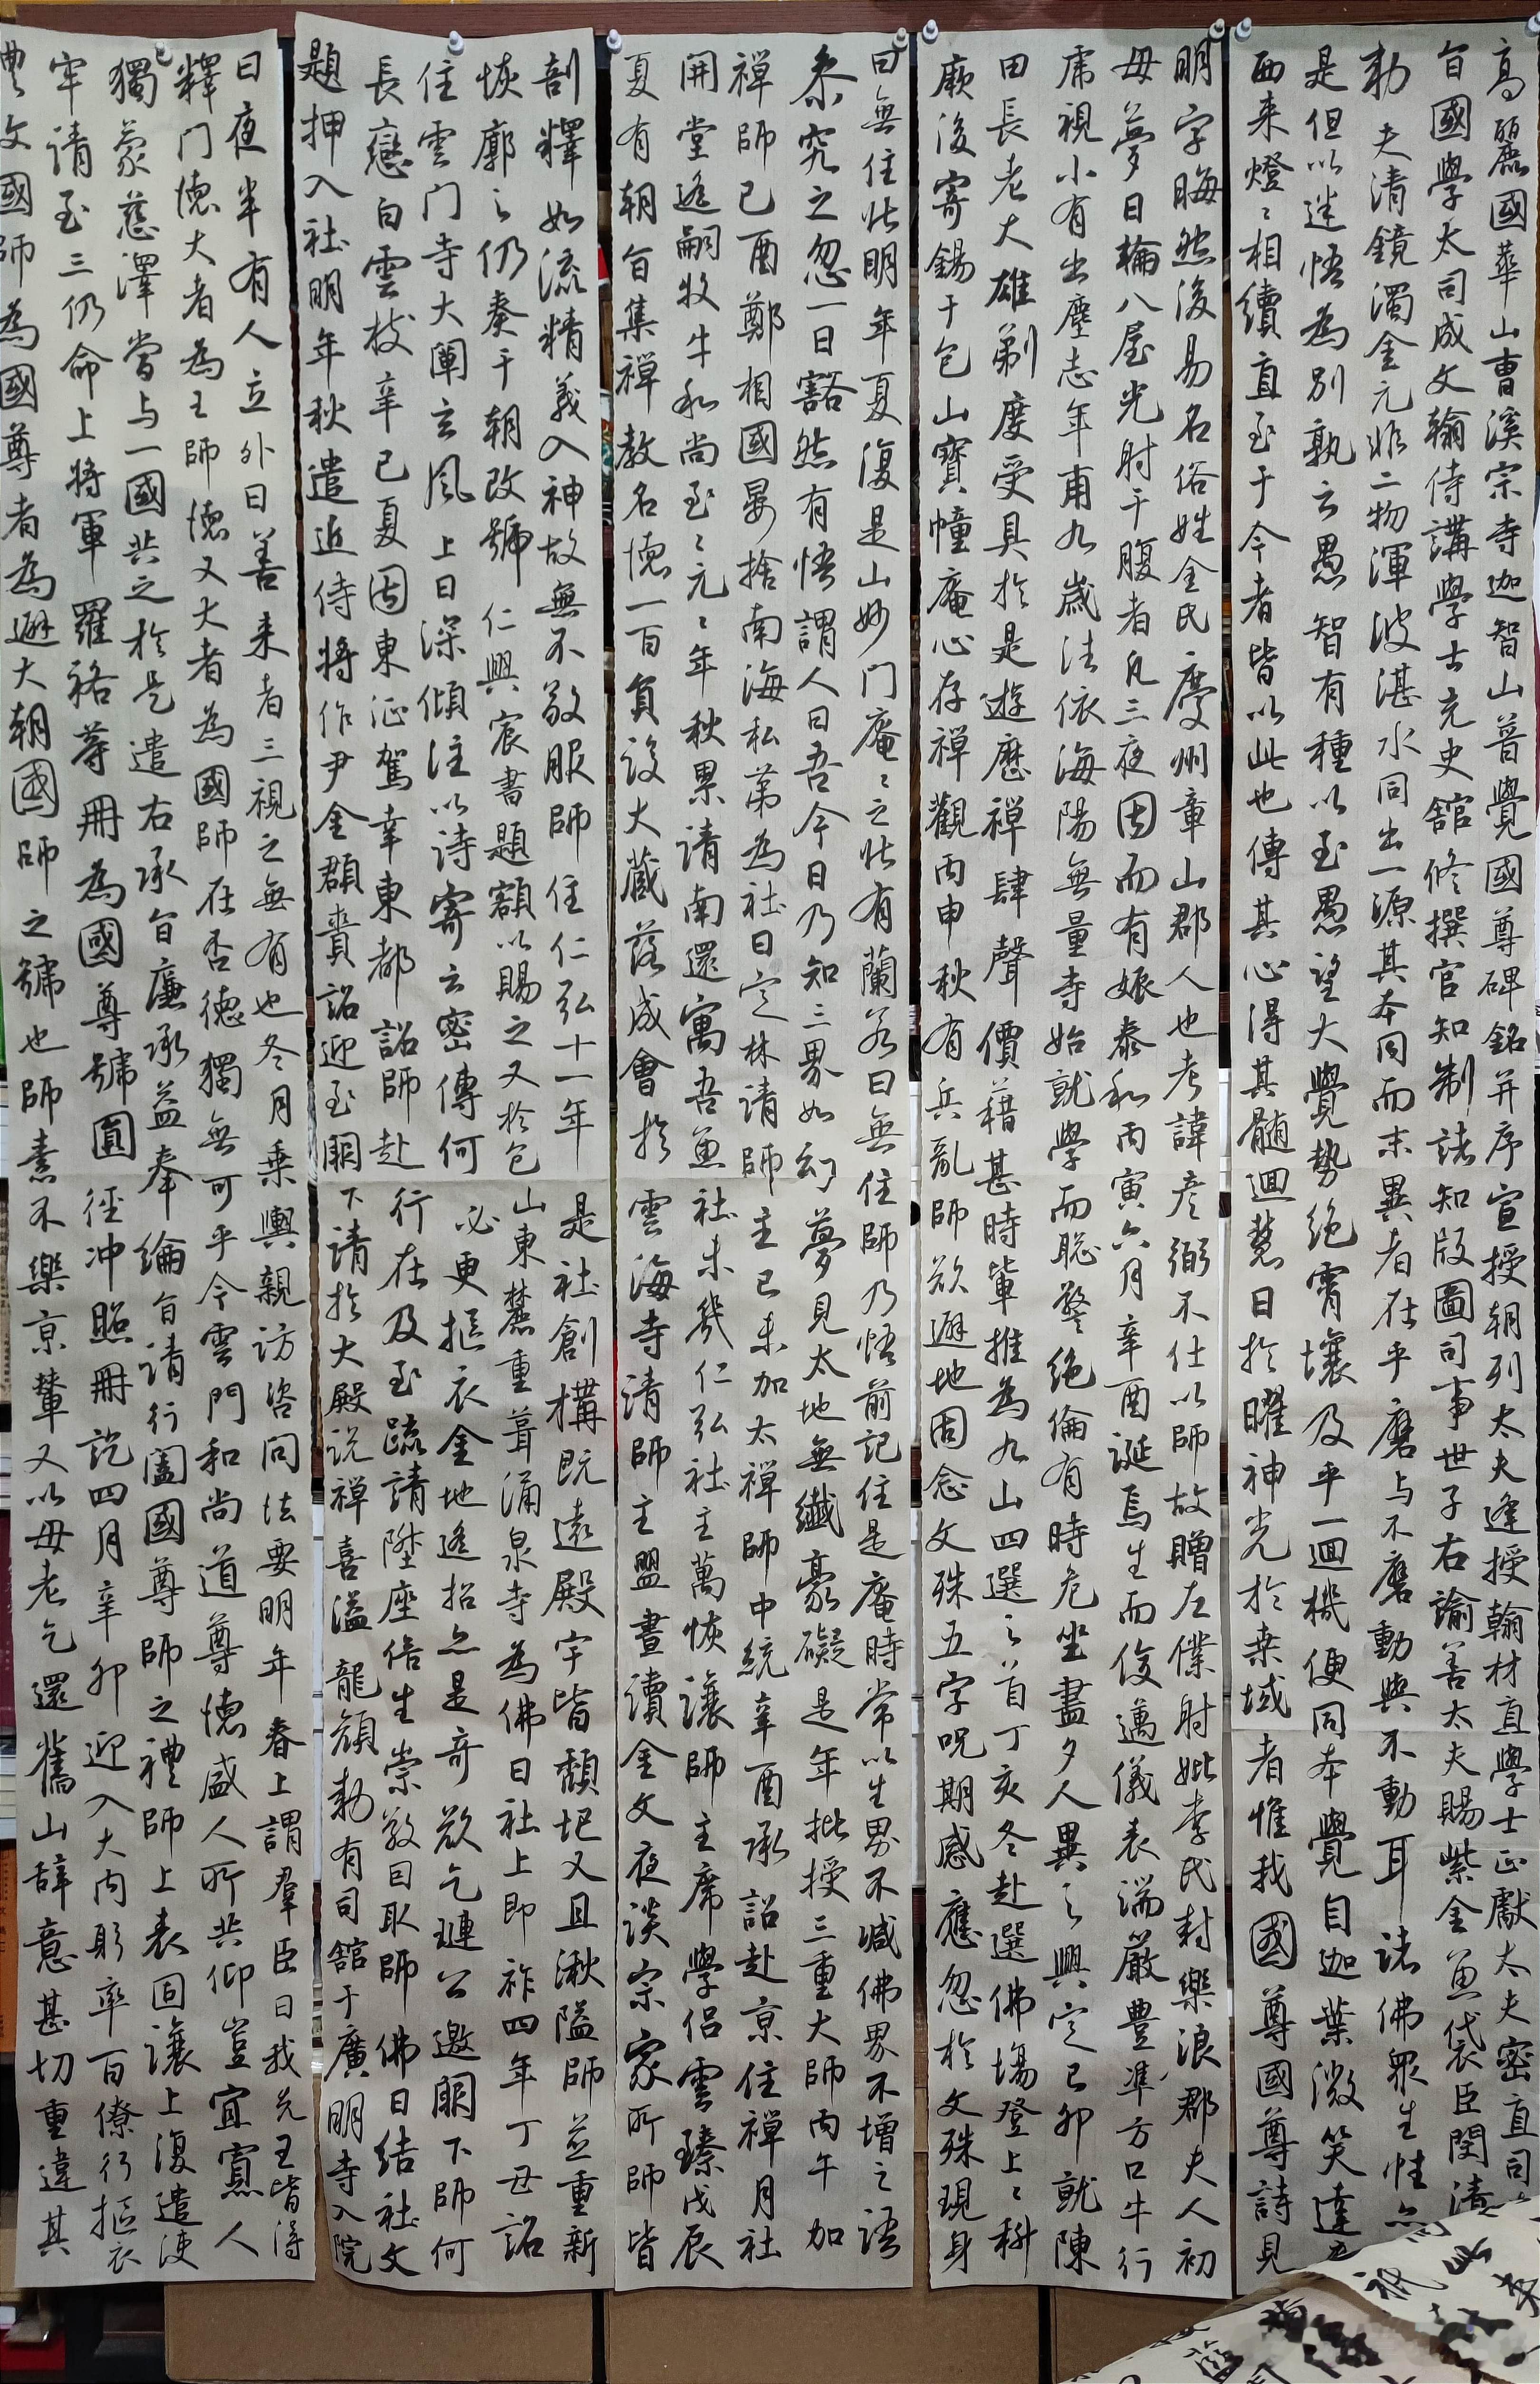 高麗國華山曹溪宗寺迦智山普覺國尊碑銘并序宣授朝列太夫逢授翰材直學士正獻太夫密直司
旨國學太司成文翰侍講學士充史館修撰官知制誥知版圖司事世子右諭善太夫賜紫金魚袋臣閔漬
勑夫清鏡濁金元非二物渾波湛水同出一源其本同而末異者在乎磨与不磨動與不動耳諸佛衆生性
是但以迷悟為別孰云愚智有種以至愚望大覺勢絶霄壤及乎一迴機便同本覺自迦葉微笑達
西来燈〻相續直至于今者皆以此也傳其心得其髄迴慧日於曜神光於桒域者惟我國尊國尊詩見
明字晦然後易名俗姓金氏慶州章山郡人也考諱彦弼不仕以師故贈左僕射妣李氏封樂浪郡夫人初
母夢日輪入屋光射于腹者凡三夜因而有娠泰和丙寅六月辛酉誕焉生而俊邁儀表端嚴豊準方口牛行
虎視小有出塵志年甫九歲往依海陽無量寺始就學而聡警絶倫有時危坐盡夕人異之興定己卯就陳
田長老大雄剃度受具於是遊歷禪肆聲價藉甚時輩推為九山四選之首丁亥冬赴選佛場登上〻科
厥後寄錫于包山寶幢庵心存禪觀丙申秋有兵亂師欲避地因念文殊五字呪期感應忽於文殊現身
曰無住北明年夏復是山妙门庵〻之北有蘭若曰無住師乃悟前記住是庵時常以生界不減佛界不增之語
参究之忽一日豁然有悟謂人曰吾今日乃知三界如幻夢見大地無纖豪礙是年批授三重大師丙午加
禪師己酉鄭相國晏捨南海私第為社曰定林請師主己未加太禪師中統辛酉承詔赴京住禪月社
開堂遙嗣牧牛和尚至〻元〻年秋累請南還寓吾魚社未幾仁弘社主萬恢讓師主席學侶雲臻戊辰
夏有朝旨集禪教名德一百負設大藏落成會於雲海寺請師主盟晝讀金文夜談宗家所師皆
剖釋如流精義入神故無不敬服師住仁弘十一年是社創構既遠殿宇皆頹圯又且湫隘師並重新
恢廓之仍奏于朝改號仁興宸書題額以賜之又於包山東麓重葺涌泉寺為佛日社上即祚四年丁丑詔
住雲门寺大闡玄風上日深傾注以诗寄云密傳何必更摳衣金地遙招亦是奇欲乞璉公邀闕下師何
長戀白雲枝辛巳夏因東征駕幸東都詔師赴行在及至疏請陞座倍生崇敬因取師佛日結社文
題押入社明年秋遣近侍将作尹金頵賫詔迎至闕下请於大殿说禅喜溢龍顔勑有司館于廣明寺入院
日夜半有人立外曰善来者三視之無有也冬月乗輿親访咨问法要明年春上謂羣臣曰我先王皆得
釋门德大者為王師德又大者為國師在否德獨無可乎今雲門和尚道尊德盛人所共仰豈宜寡人
獨蒙慈澤當与一國共之於是遣右承旨廉承益奉綸旨请行闔國尊師之禮師上表固讓上復遣使
牢請至三仍命上將軍羅裕等冊為國尊號圓徑冲照冊訖四月辛卯迎入大内躬率百僚行摳衣
豊文國師為國尊者為避大朝國師之號也師素不樂京輦又以母老乞還舊山辞意甚切重違其